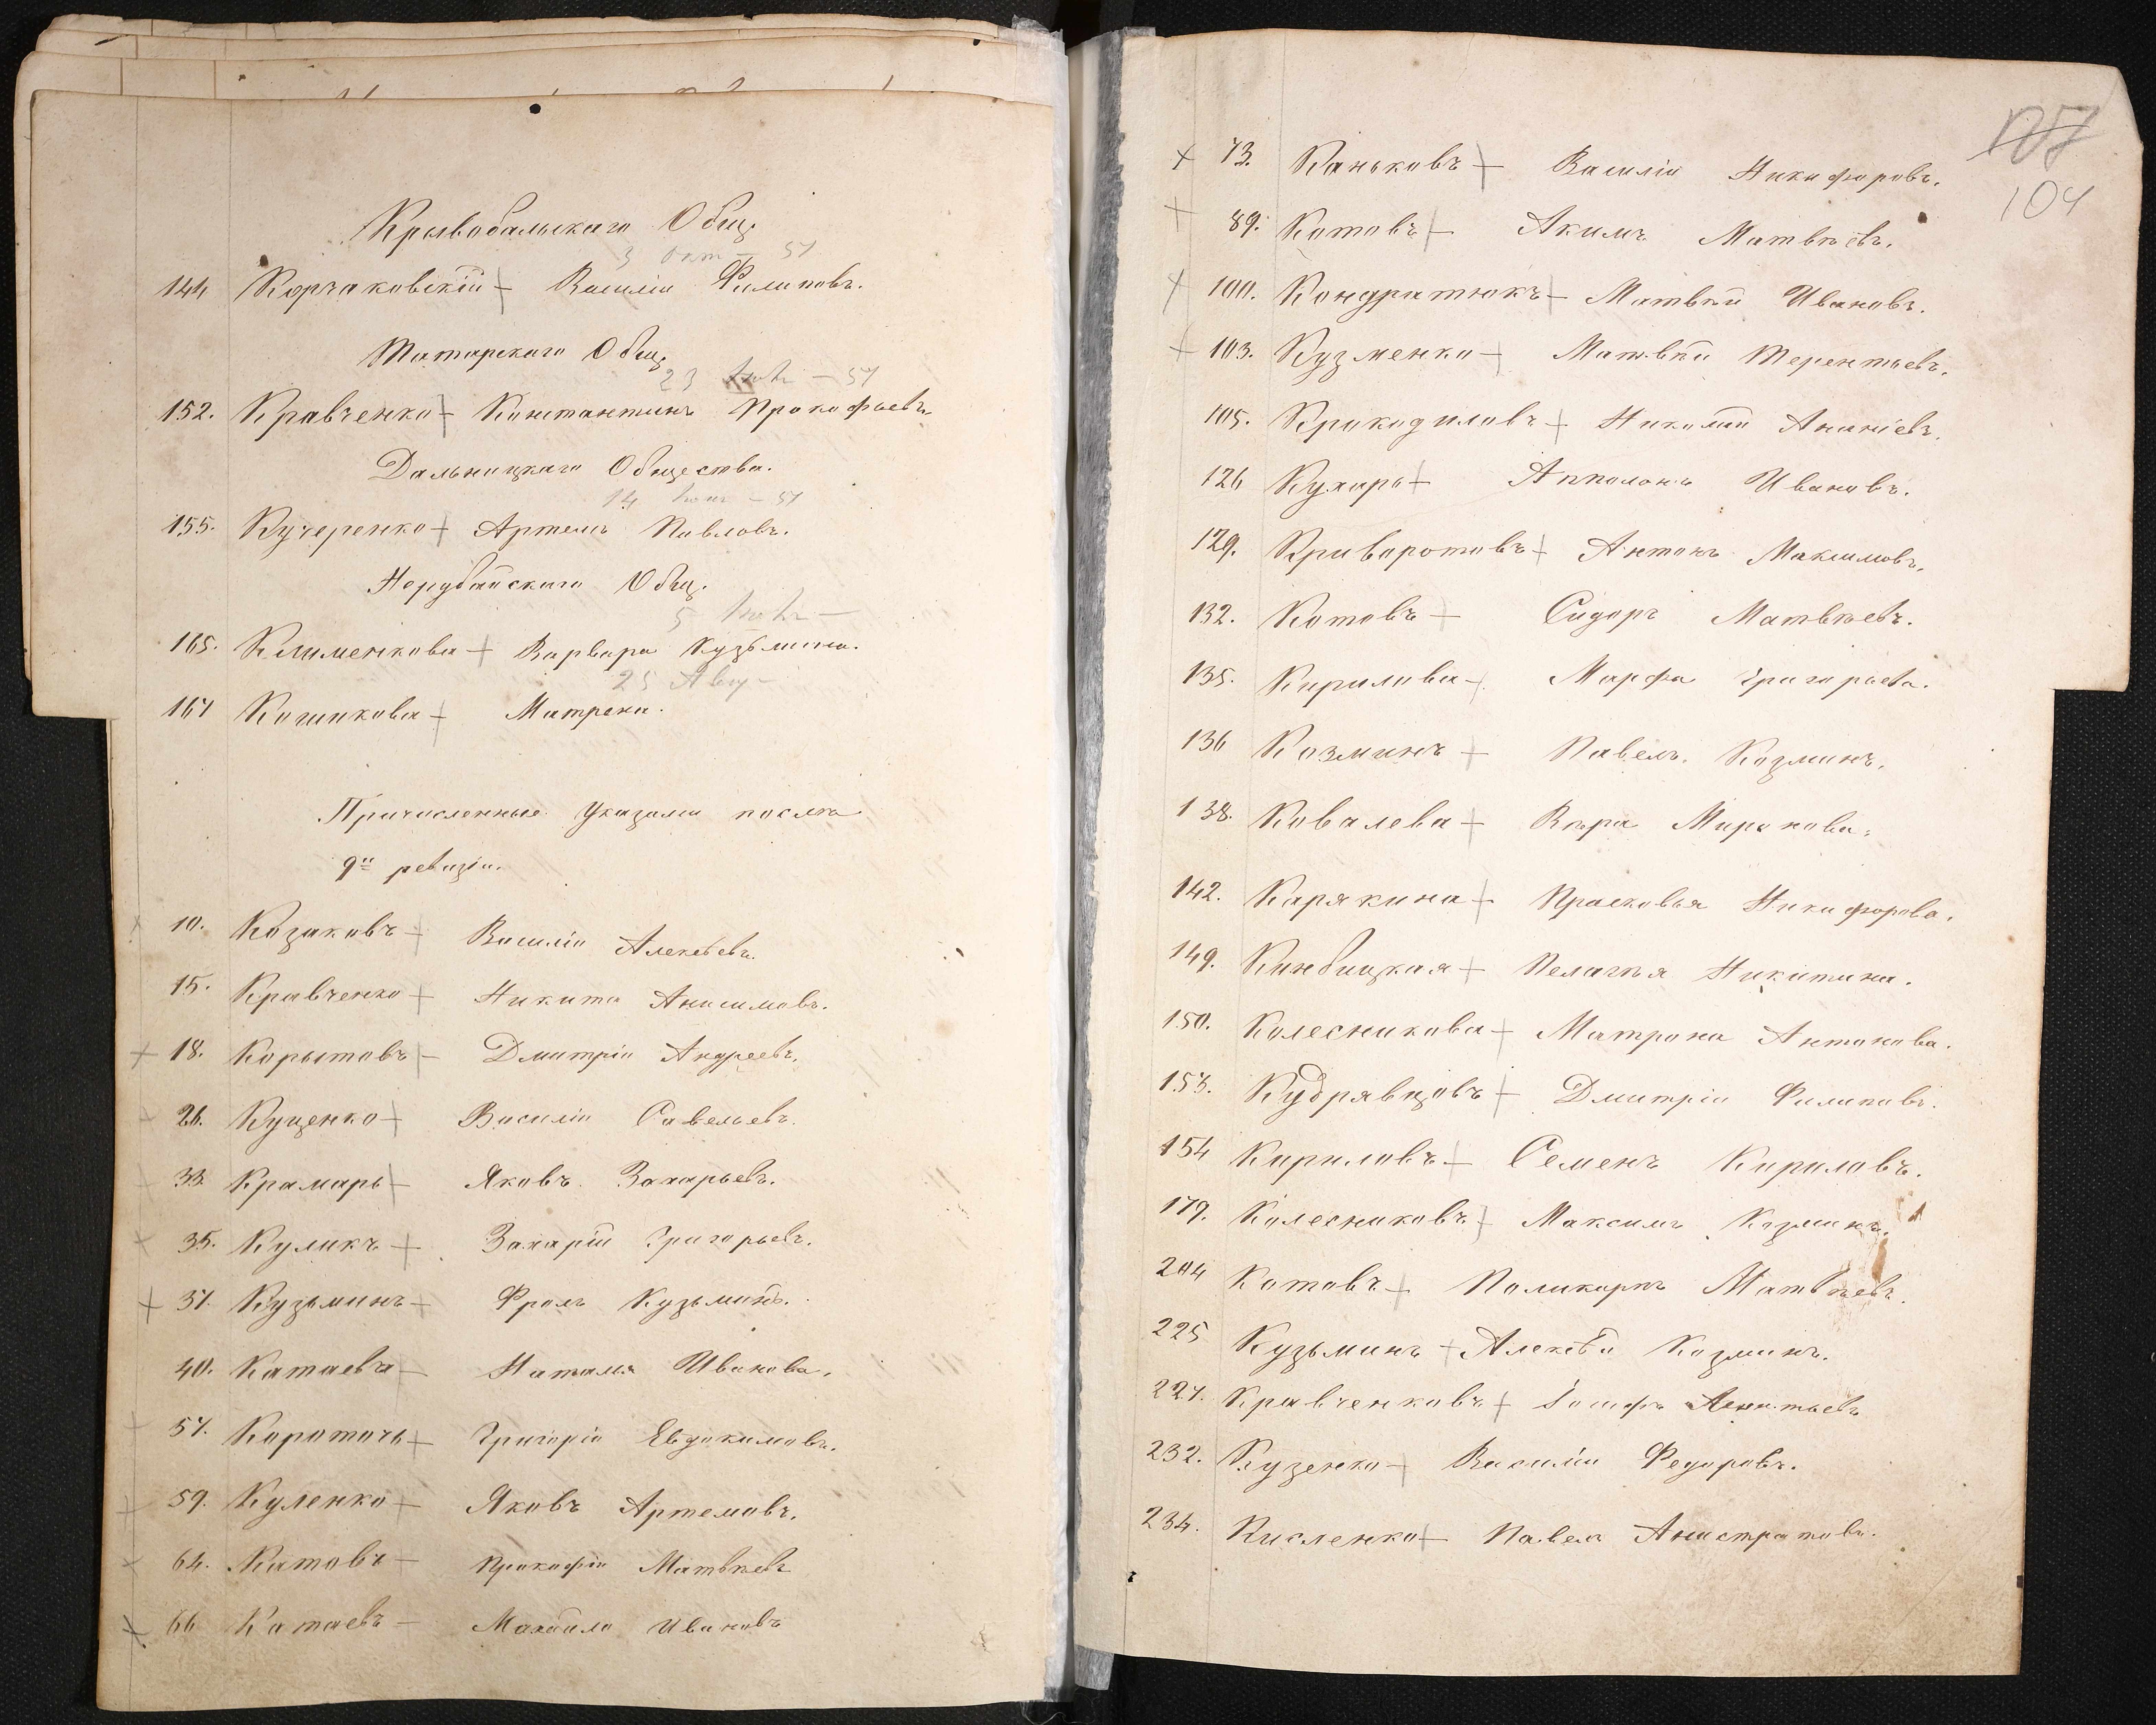 Кривобальскаго Общ.
3 Окт — 57
144 Корчаковскій — Василій Филиповъ.
Татарскаго Общ.
23 — 57
152. Кравченко — Константинъ Прокофьевъ.
Дальницкаго Общества.
14 — 57
155. Кучеренко — Артемъ Павловъ.
Нерубайскаго Общ.
5
165. Клименкова — Варвара Кузьмина.
25 Авгу —
167 Кошикова — Матрена.
Причисленные Указами послѣ
9й ревизіи.
10. Козаковъ — Василій Алексѣевъ.
15. Кравченко — Никита Анисимовъ.
18. Корытовъ — Дмитрій Андреевъ.
26. Куценко — Василій Савельевъ.
33. Крамарь — Яковъ Захарьевъ.
35. Куликъ — Захарій Григорьевъ.
37. Кузьминъ — Фролъ Кузьминъ.
40. Катаева — Наталья Иванова.
57. Коротычъ — Григорій Евдокимовъ.
59. Куленко — Яковъ Артемовъ.
64. Котовъ — Прокофій Матвѣевъ
66 Катаевъ — Михайло Ивановъ
107
104
73. Каньковъ — Василій Никифоровъ.
89. Котовъ — Акимъ Матвѣевъ.
100. Кондратюкъ — Матвѣй Ивановъ.
103. Кузменко — Матвѣй Терентьевъ.
105. Крокодиловъ — Николай Ананіевъ.
126 Кухарь — Апполонъ Ивановъ.
129. Криворотовъ — Антонъ Максимовъ.
132. Котовъ — Сидоръ Матвѣевъ.
135. Кирилова — Марфа Григорьева.
136 Козминъ — Павелъ Козминъ.
138. Ковалева — Вѣра Миронова.
142. Карякина — Прасковья Никифорова.
149. Кинбицкая — Пелагѣя Никитина.
150. Колесникова — Матрона Антонова.
153. Кудрявцовъ — Дмитрій Филиповъ.
154 Кириловъ — Семенъ Кириловъ.
179. Колесниковъ — Максимъ Козминъ.
204 Котовъ — Поликарпъ Матвѣевъ.
225 Кузьминъ — Алексѣй Козминъ.
227. Кравченковъ — Іосифъ Леонтьевъ
232. Куценко — Василій Федоровъ.
234. Кисленко — Павелъ Анистратовъ.